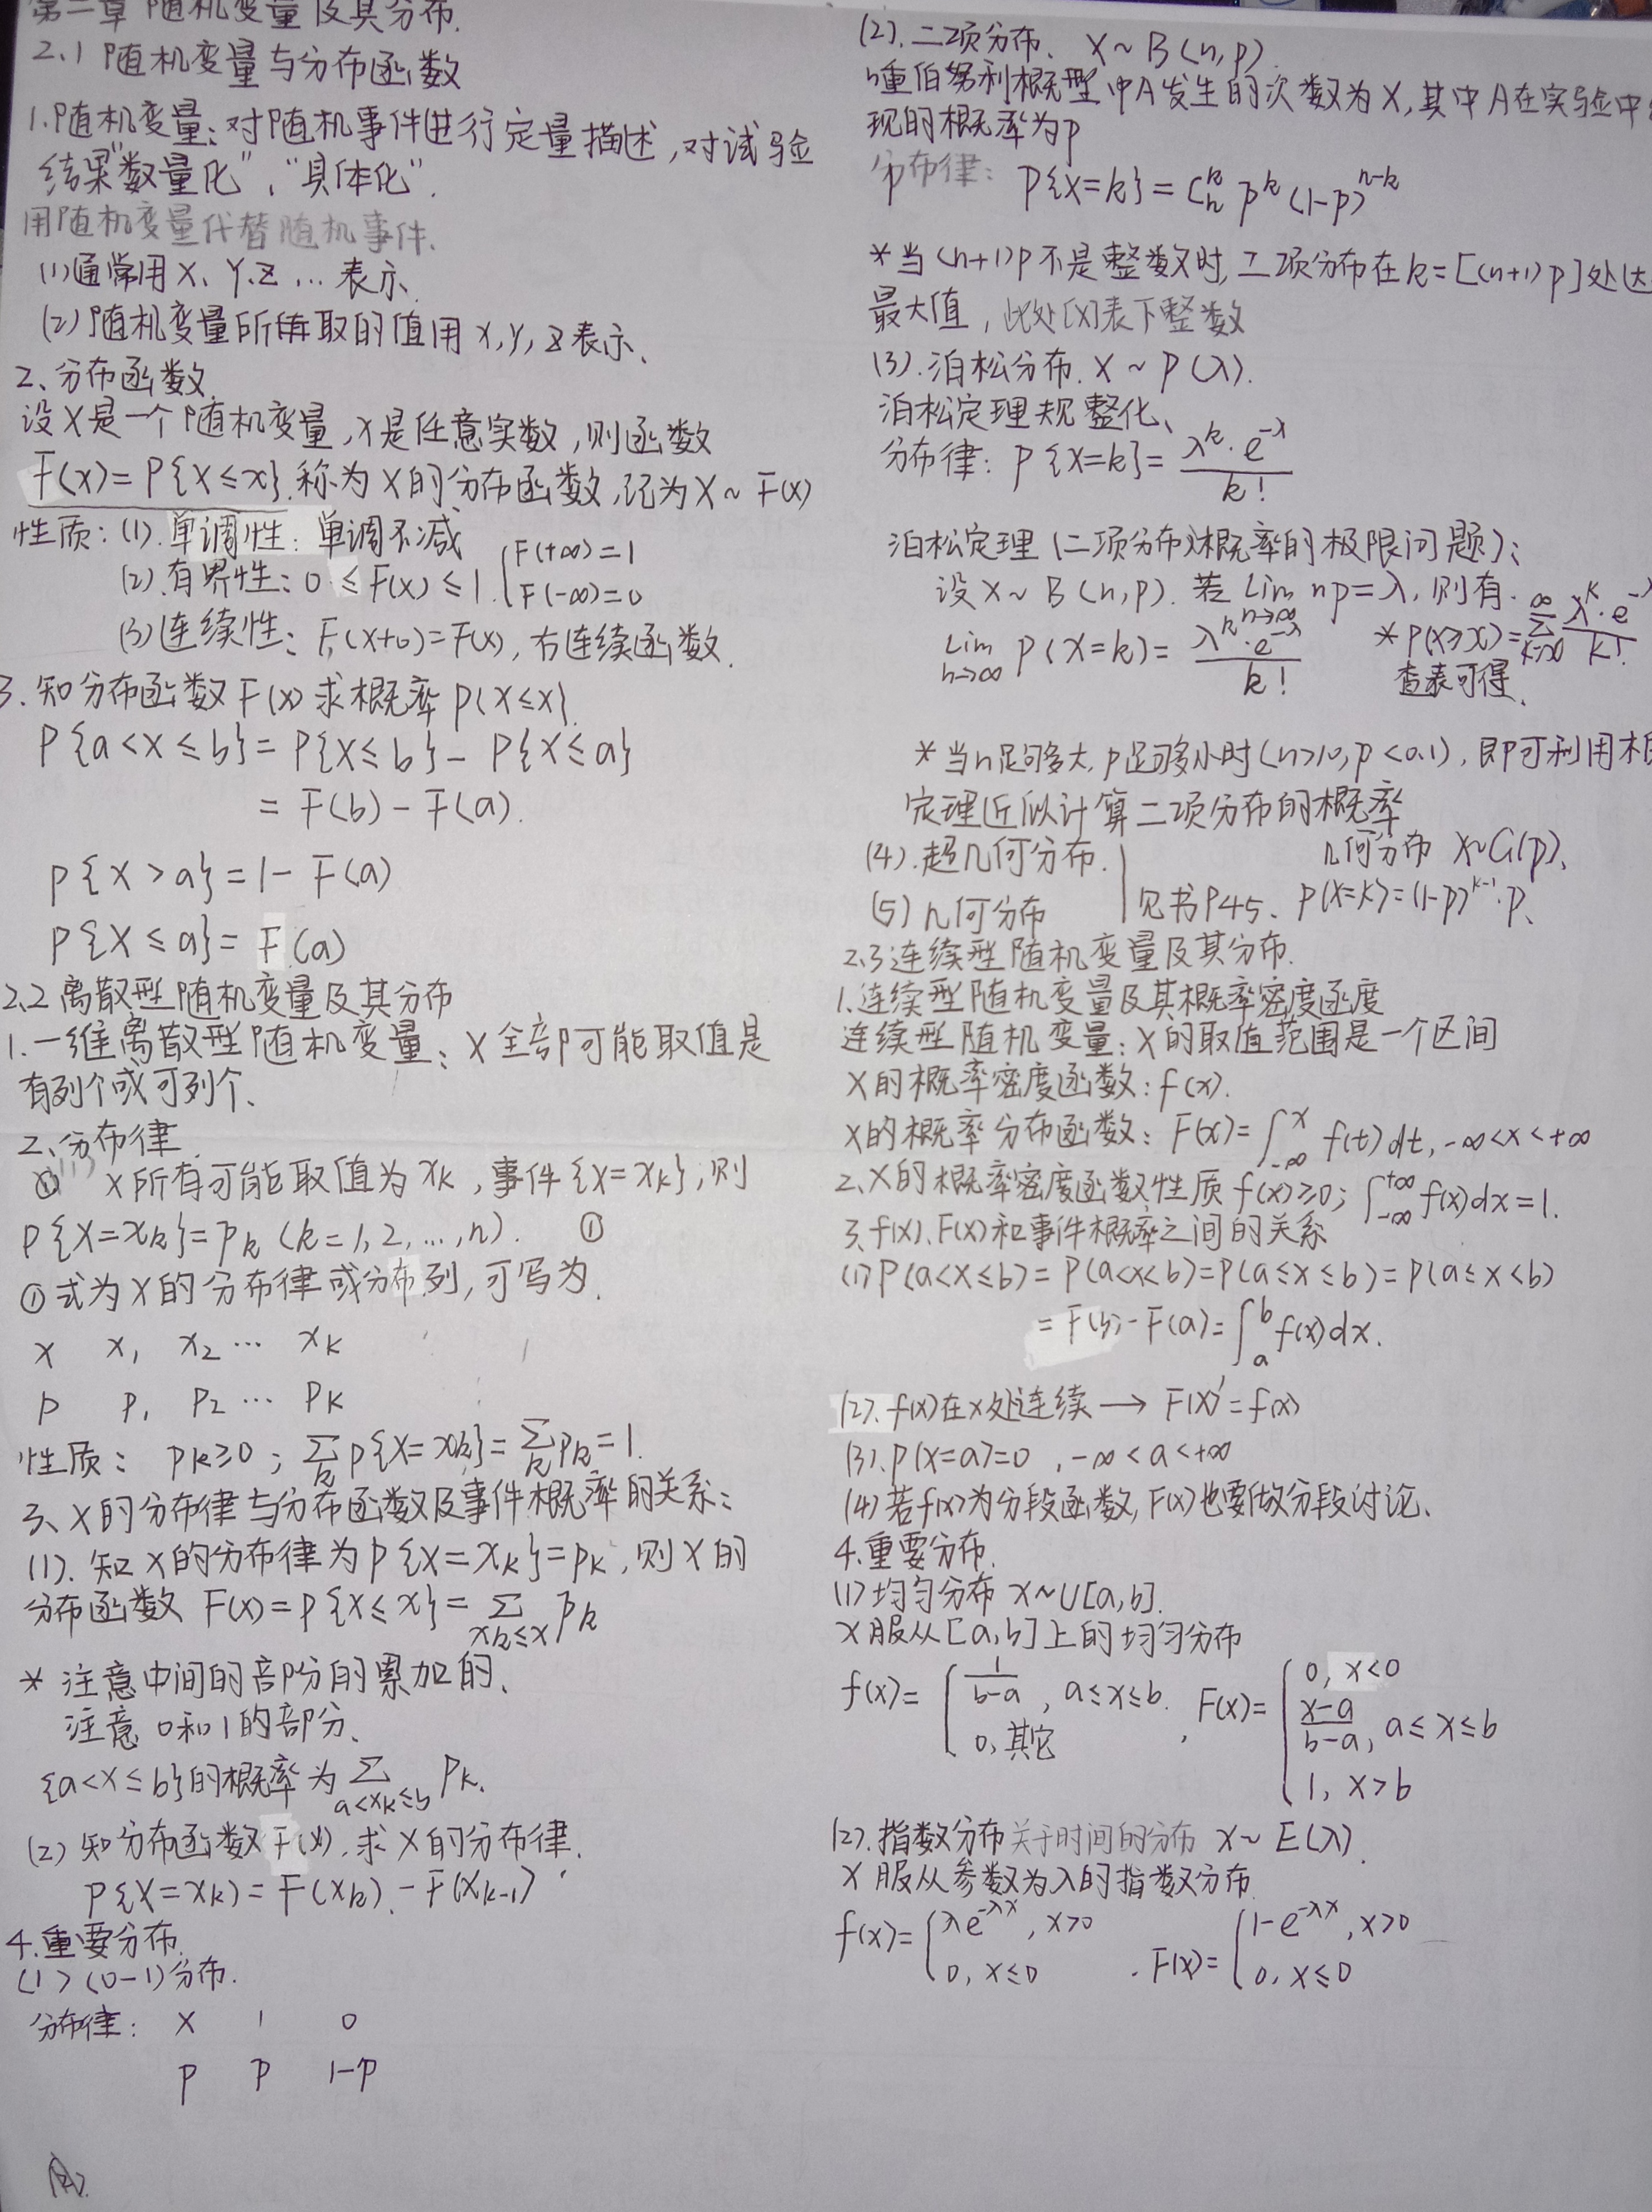 第二章 随机变量及其分布.
2.1 随机变量与分布函数
1.随机变量:对随机事件进行定量描述,对试验
结果"数量化"、"具体化".
用随机变量代替随机事件.
(1)通常用X、Y、Z…表示.
(2)随机变量所取的值用x,y,z表示、
2、分布函数
设X是一个随机变量,x是任意实数,则函数
F(x)=P{X≤x}.称为X的分布函数,记为X~F(x)
性质:(1).单调性:单调不减
(2).有界性:0≤F(x)≤1. { F(+∞)=1 F(-∞)=0
(3)连续性:F(x+0)=F(x),右连续函数.
3.知分布函数F(x)求概率P{X≤x}.
P{a<X≤b}=P{X≤b}-P{X≤a}
=F(b)-F(a).
P{X>a}=1-F(a)
P{X≤a}=F(a)
2.2 离散型随机变量及其分布
1.一维离散型随机变量:X全部可能取值是
有列个或可列个、
2、分布律
① X所有可能取值为xk,事件{X=xk},则
P{X=xk}=pk (k=1,2,…,n). ①
①式为X的分布律或分布列,可写为.
X x1 x2 … xk
P P1 P2 … Pk
性质: Pk≥0;∑k P{X=xk}=∑k Pk=1.
3、X的分布律与分布函数及事件概率的关系:
(1).知X的分布律为P{X=xk}=pk,则X的
分布函数 F(x)=P{X≤x}=∑xk≤x Pk
* 注意中间的部分的累加的、
注意0和1的部分、
{a<X≤b}的概率为∑a<xk≤b Pk.
(2)知分布函数F(x).求X的分布律.
P{X=xk)=F(xk)-F(xk-1)
4.重要分布
(1)(0-1)分布.
分布律: X 1 0
P P 1-P
(2).二项分布. X~B(n,p).
n重伯努利概型中A发生的次数为X,其中A在实验中
现的概率为p
分布律: P{X=k}=C_n^k p^k (1-p)^{n-k}
*当(n+1)p不是整数时,二项分布在k=[(n+1)p]处达
最大值,此处[x]表下整数
(3).泊松分布.X~P(λ).
泊松定理规整化、
分布律:P{X=k}=λ^k·e^{-λ}/k!
泊松定理(二项分布)概率的极限问题):
设X~B(n,p).若 lim n→∞ np=λ,则有.
lim n→∞ P(X=k)=λ^k·e^{-λ}/k! *P(X≥x)=∑_{k=x}^∞ λ^k·e^{-λ}/k!
查表可得、
*当n足够多大,p足够多小时(n>10,p<0.1),即可利用
定理近似计算二项分布的概率
(4).超几何分布. 几何分布 X~G(p)、
(5)几何分布 见书P45、P(X=k)=(1-p)^{k-1}·p、
2.3连续型随机变量及其分布.
1.连续型随机变量及其概率密度函度
连续型随机变量:X的取值范围是一个区间
X的概率密度函数:f(x).
X的概率分布函数:F(x)=∫_{-∞}^x f(t)dt,-∞<x<+∞
2、X的概率密度函数性质f(x)≥0;∫_{-∞}^{+∞} f(x)dx=1.
3、f(x)、F(x)和事件概率之间的关系
(1)P(a<X≤b)=P(a<x<b)=P(a≤x≤b)=P(a≤x<b)
=F(b)-F(a)=∫_a^b f(x)dx.
(2).f(x)在x处连续→F(x)'=f(x)
(3).P(x=a)=0,-∞<a<+∞
(4)若f(x)为分段函数,F(x)也要做分段讨论、
4.重要分布.
(1)均匀分布 X~U[a,b].
X服从[a,b]上的均匀分布
f(x)={ 1/(b-a),a≤x≤b. 0,其它 , F(x)={ 0,x<0 (x-a)/(b-a),a≤x≤b 1,x>b
(2).指数分布关于时间的分布 X~E(λ).
X服从参数为λ的指数分布
f(x)={ λe^{-λx},x>0 0,x≤0 . F(x)={ 1-e^{-λx},x>0 0,x≤0